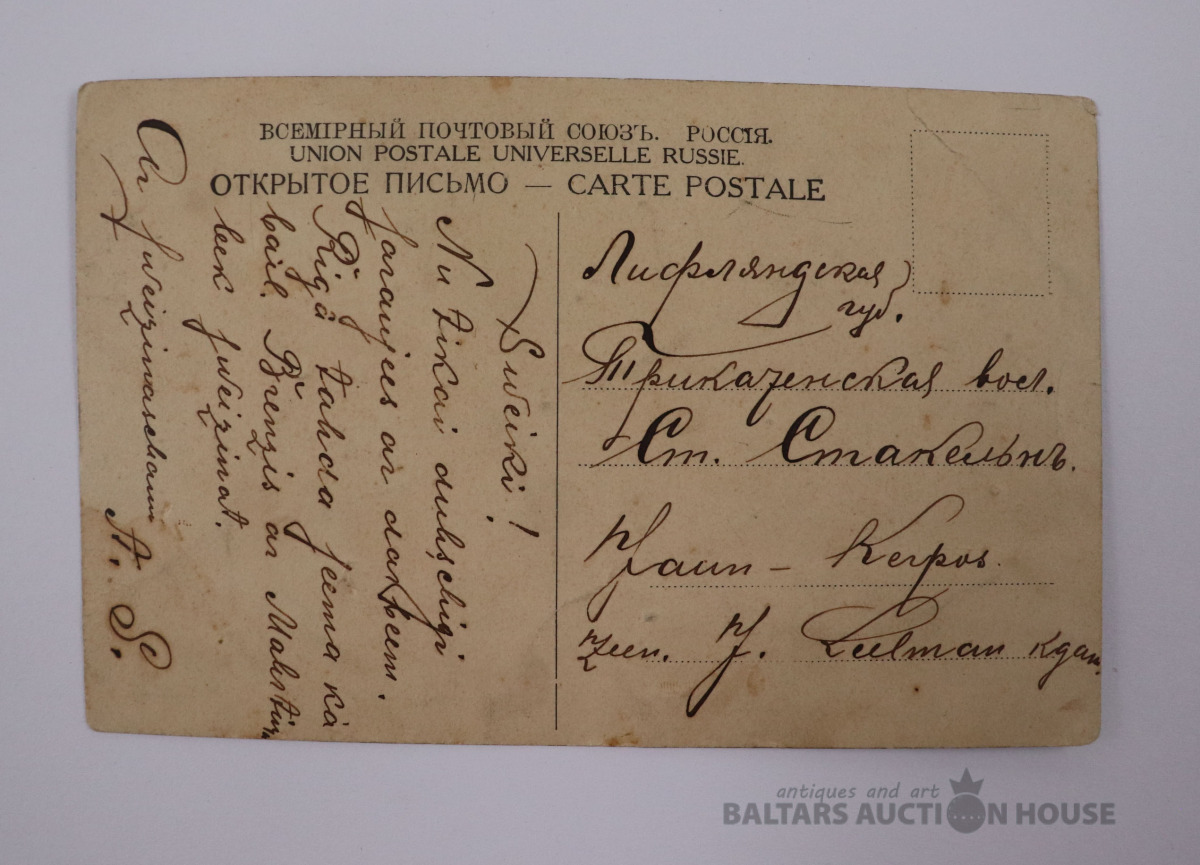 ВСЕМІРНЫЙ ПОЧТОВЫЙ СОЮЗЪ. РОССІЯ.
UNION POSTALE UNIVERSELLE RUSSIE.
ОТКРЫТОЕ ПИСЬМО — CARTE POSTALE
Sveiki!
Nu tikai duhschigi
saraujees ar darbeem.
Rigā tahda seema kā
bail. Brenzis ar Mahrtiņ
leek sveizinat.
Ar sveizinaschanu
A. S.
Лифляндская
губ.
Трикатенская вол.
Ст. Стакельнъ.
Jaun - Kerpos.
zeen. J. Leelman kgam.
antiques and art
BALTARS AUCTION HOUSE